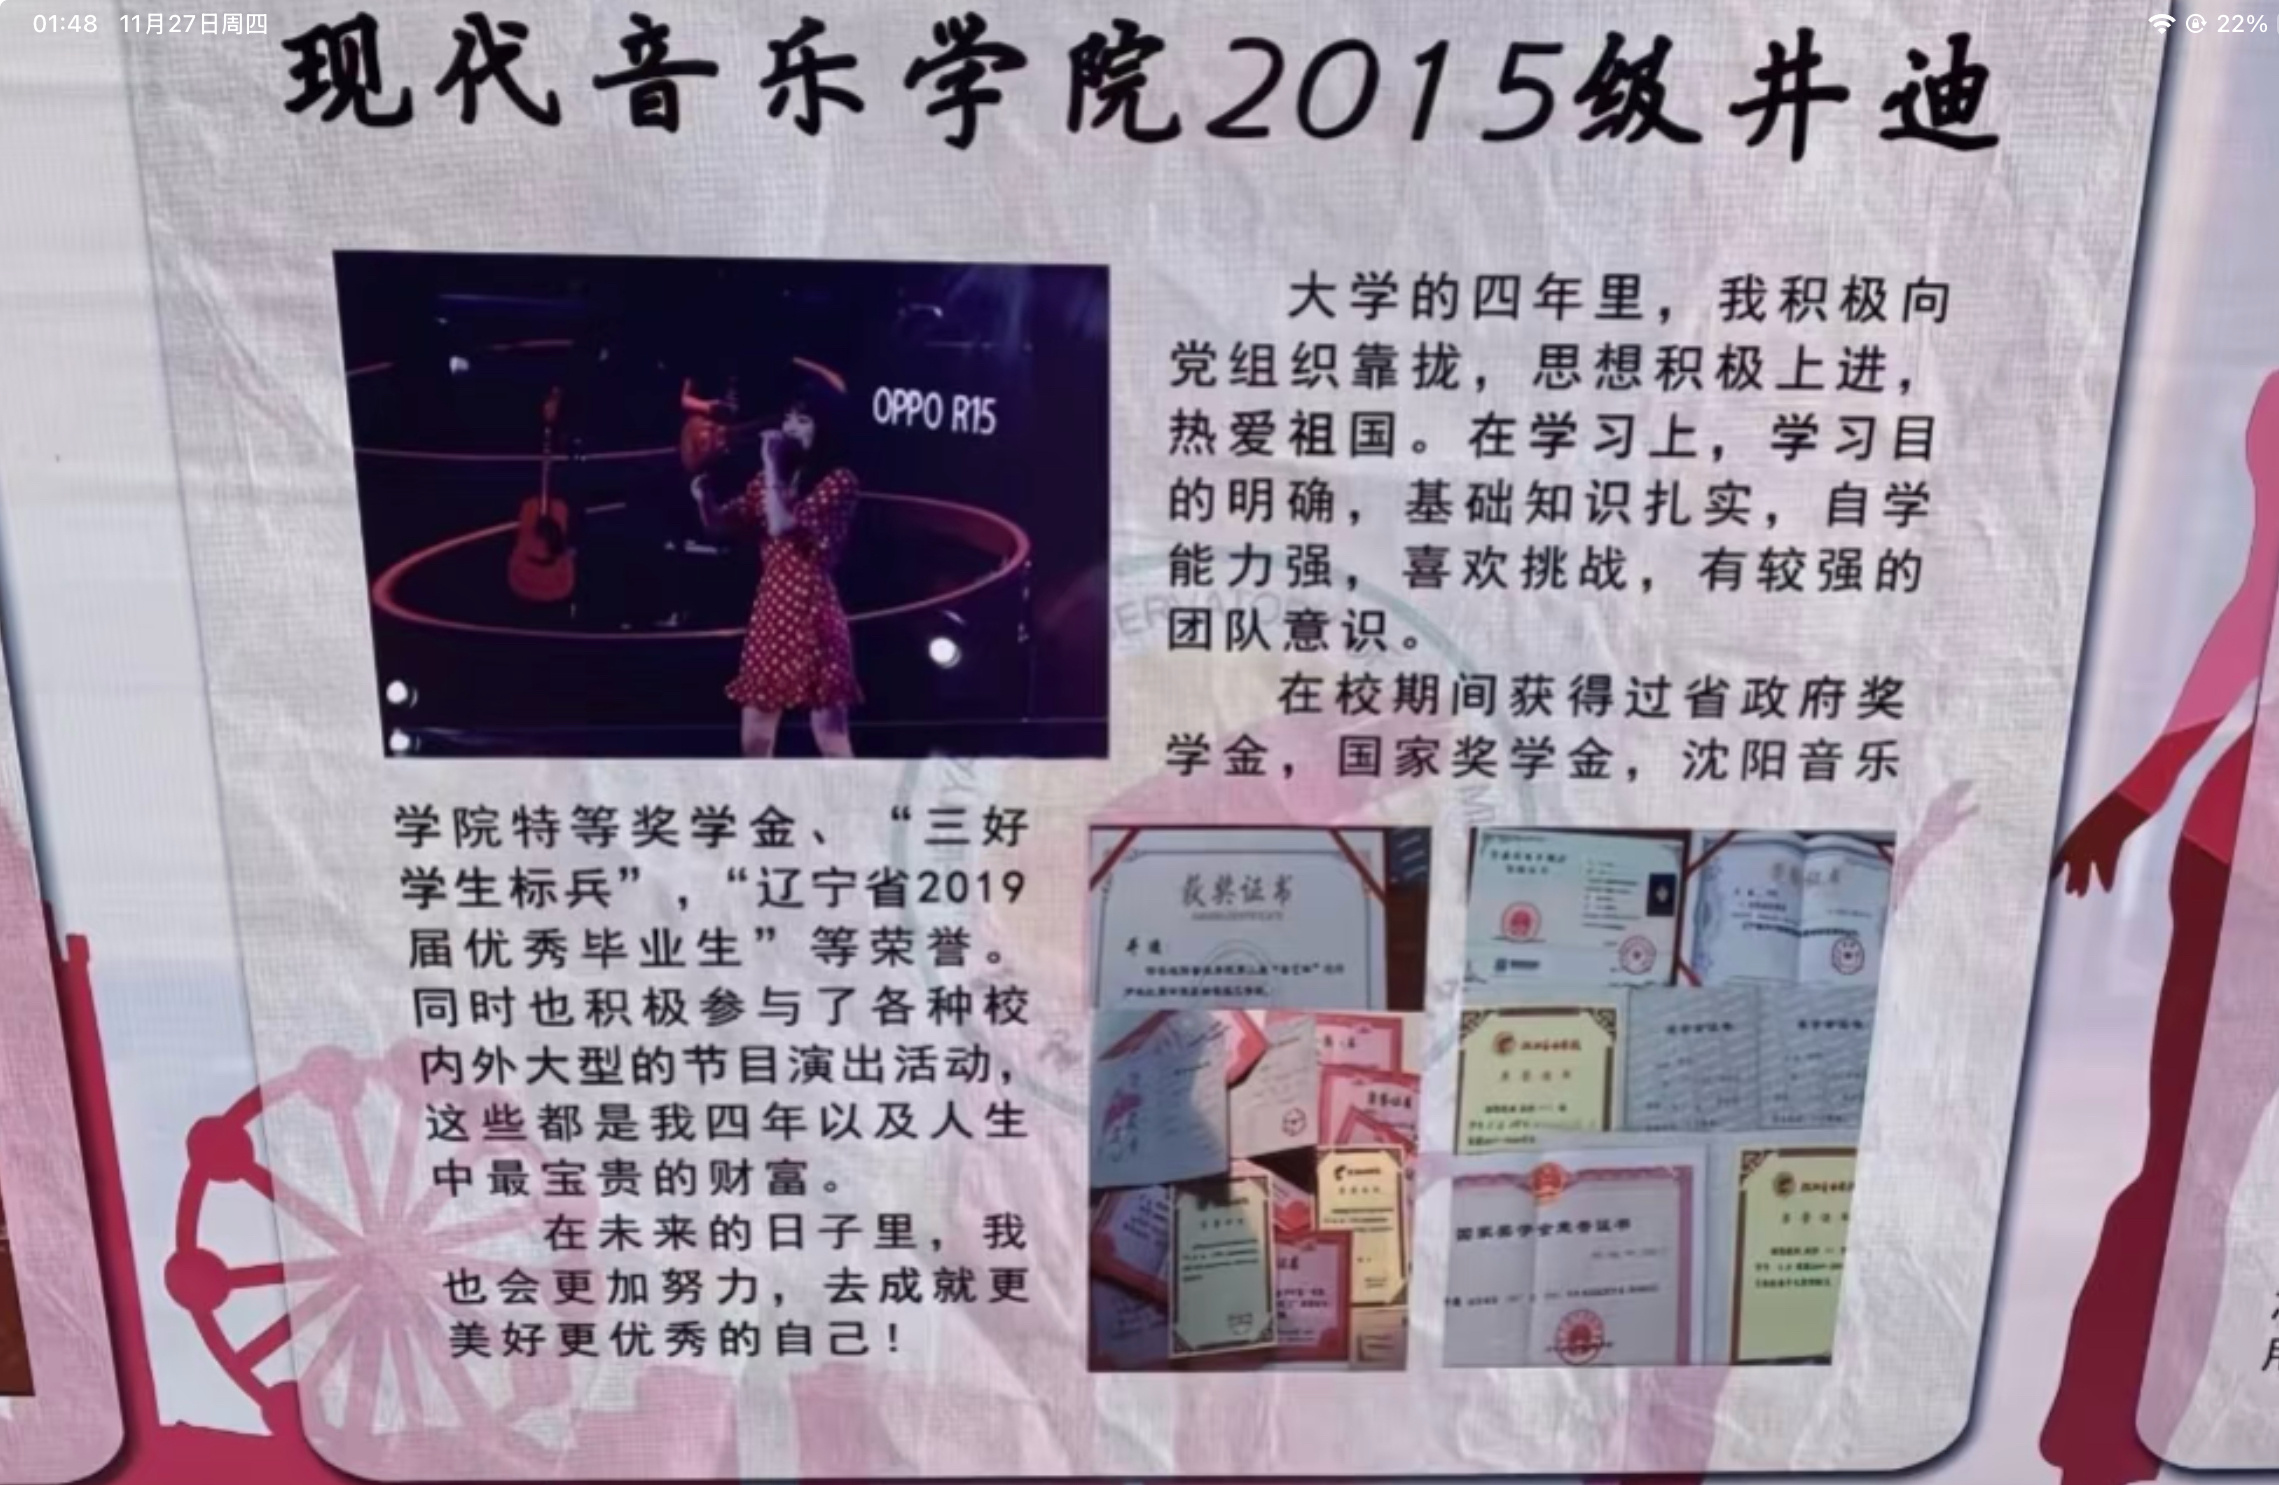 01:48 11月27日周四
22%
现代音乐学院2015级井迪
OPPO R15
大学的四年里，我积极向
党组织靠拢，思想积极上进，
热爱祖国。在学习上，学习目
的明确，基础知识扎实，自学
能力强，喜欢挑战，有较强的
团队意识。
在校期间获得过省政府奖
学金，国家奖学金，沈阳音乐
学院特等奖学金、“三好
学生标兵”，“辽宁省2019
届优秀毕业生”等荣誉。
同时也积极参与了各种校
内外大型的节目演出活动，
这些都是我四年以及人生
中最宝贵的财富。
在未来的日子里，我
也会更加努力，去成就更
美好更优秀的自己！
获奖证书
井迪：
荣誉证书
国家奖学金荣誉证书